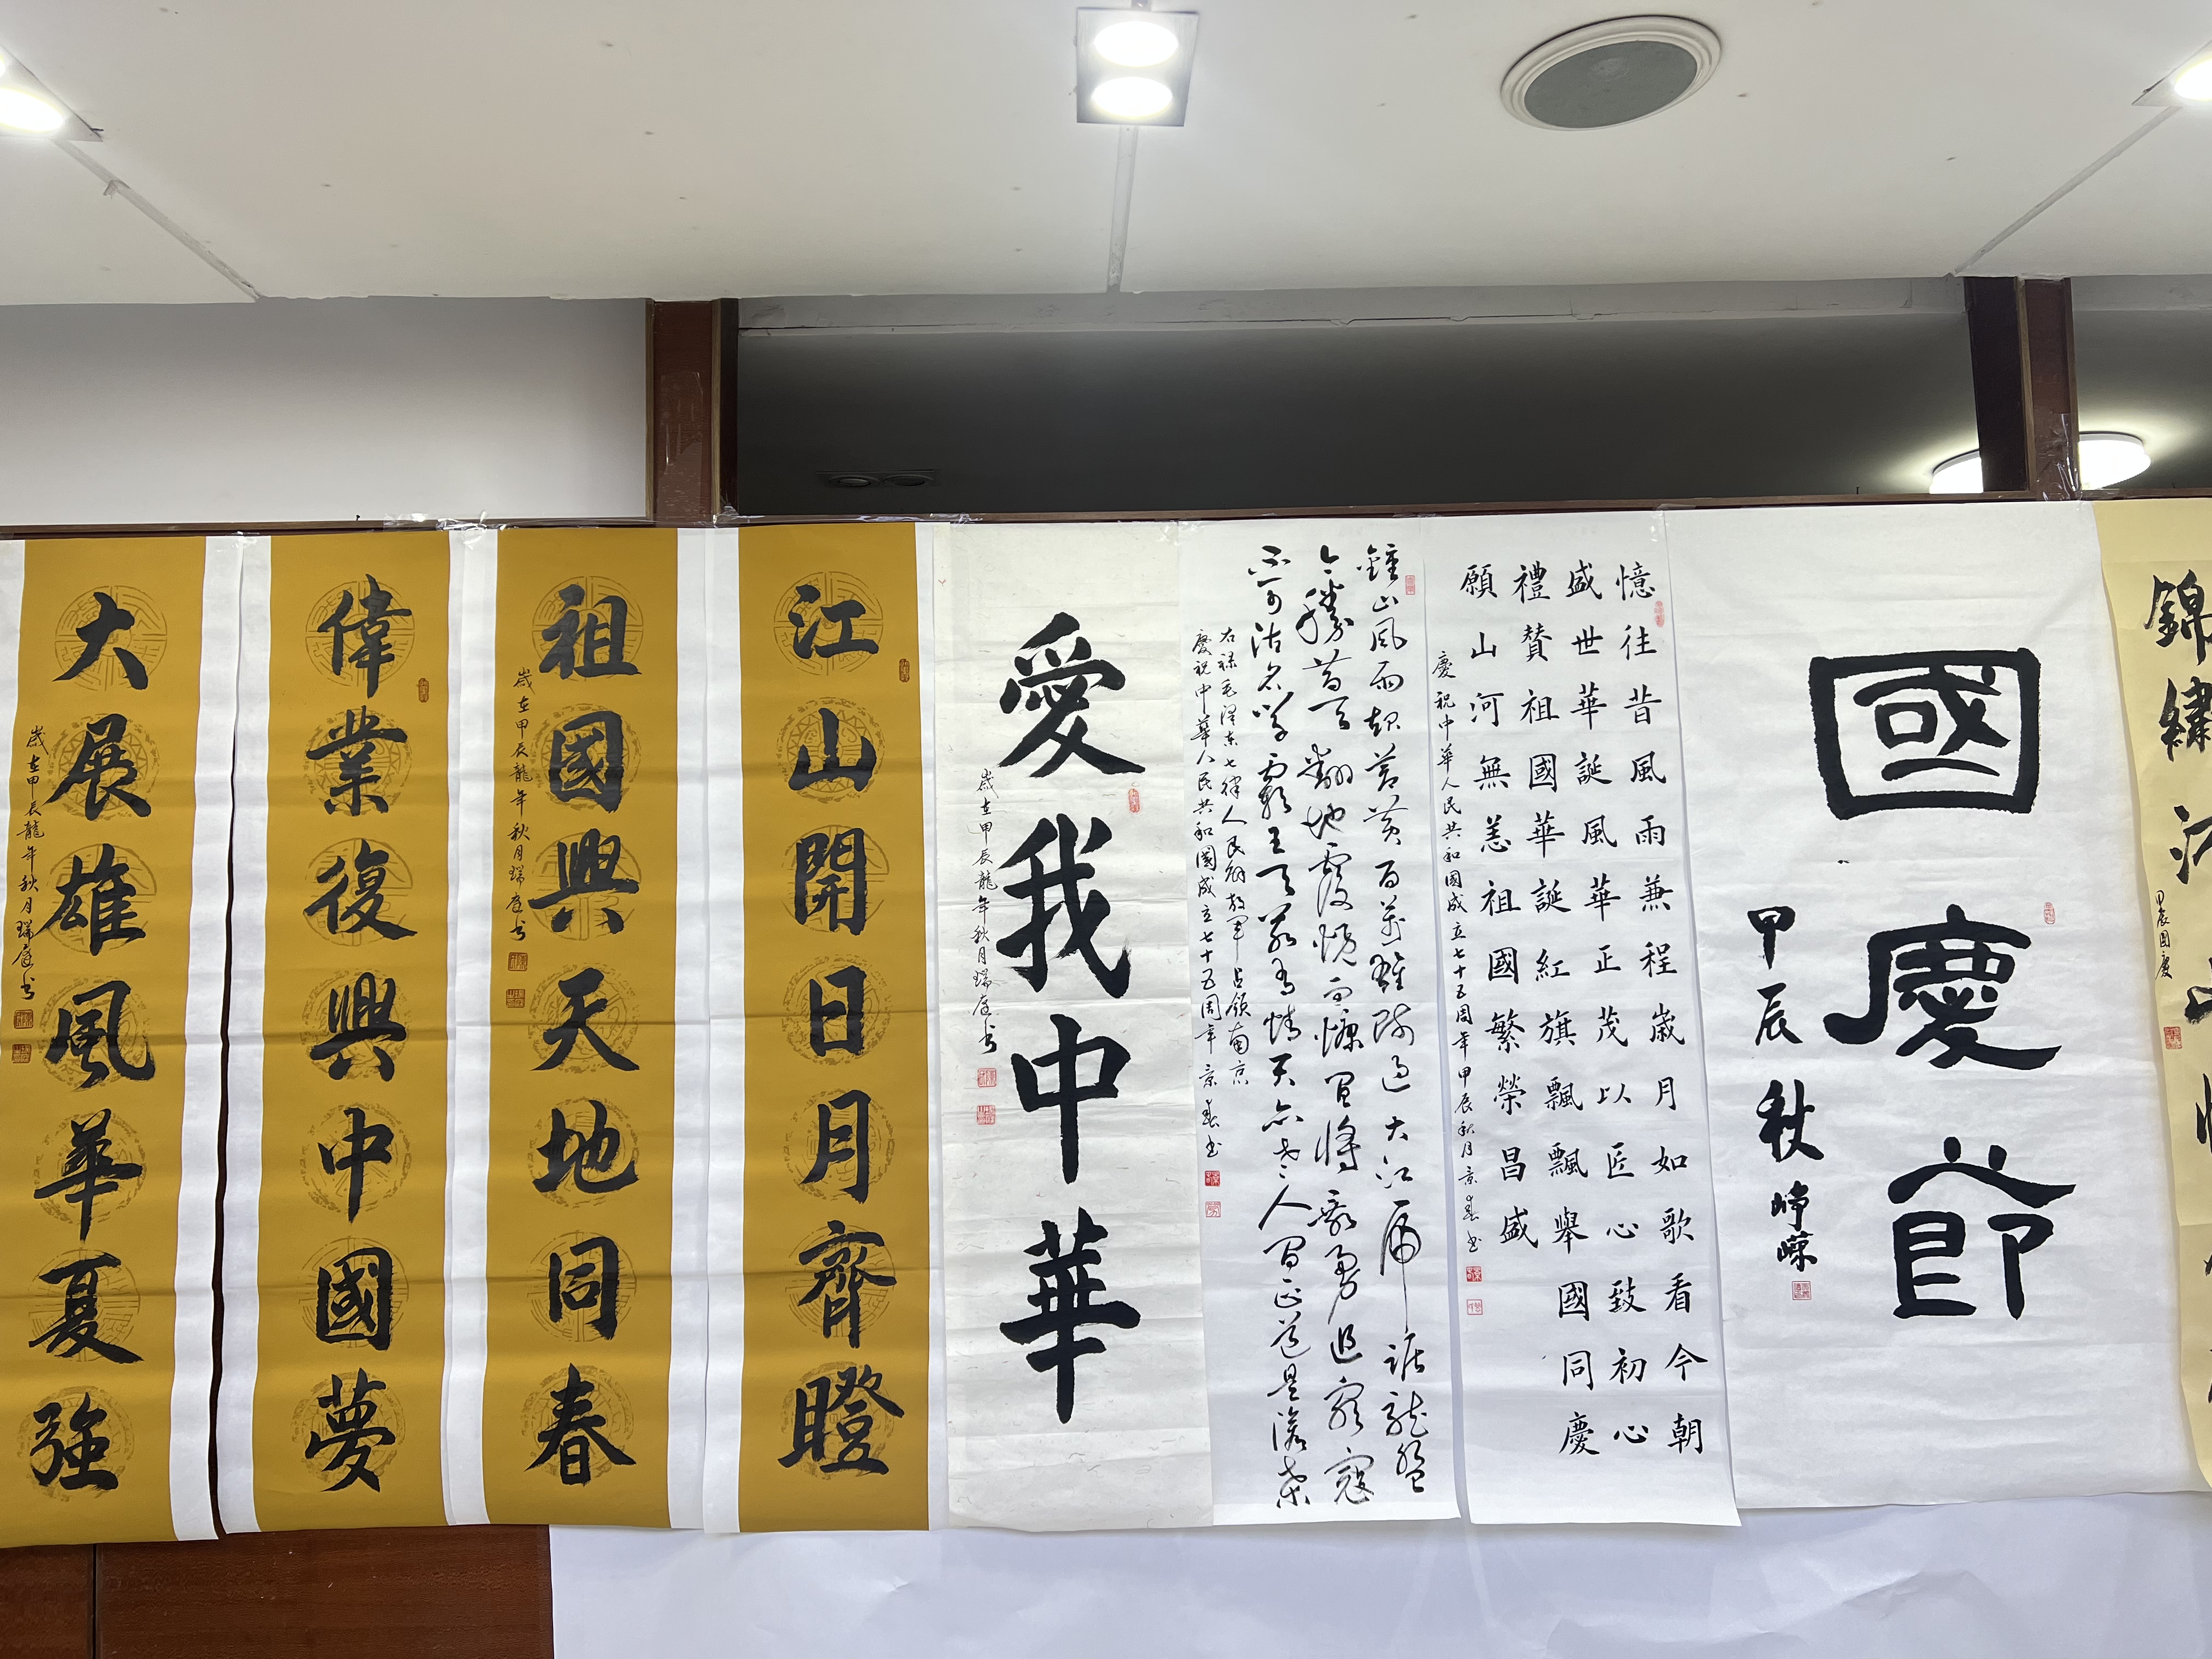 錦繡
甲辰国慶
國慶節
甲辰秋
崢嶸
憶往昔風雨兼程歲月如歌看今朝
盛世華誕風華正茂以匠心致初心
禮贊祖國華誕紅旗飄飄舉國同慶
願山河無恙祖國繁榮昌盛
慶祝中華人民共和國成立七十五周年甲辰秋月景春书
鍾山風雨起蒼黃百萬雄師過大江虎踞龍盤
今勝昔天翻地覆慨而慷宜將剩勇追窮寇
不可沽名學霸王天若有情天亦老人間正道是滄桑
右録毛澤东七律人民解放軍占領南京
慶祝中華人民共和國成立七十五周年景春书
愛我中華
歲在甲辰龍年秋月瑞庭书
江山開日月齊瞪
祖國興天地同春
歲在甲辰龍年秋月瑞庭书
偉業復興中國夢
大展雄風華夏強
歲在甲辰龍年秋月瑞庭书